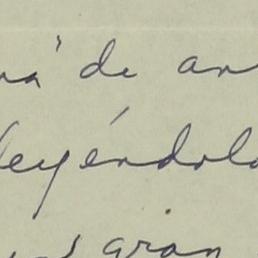 de an
leyéndolo
gran